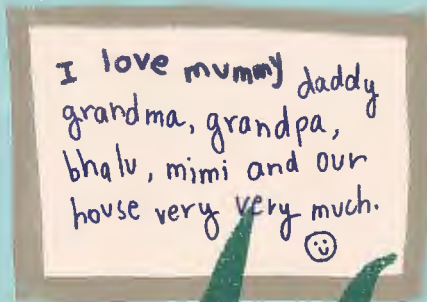 I love mummy daddy
grandma, grandpa,
bhalu, mimi and our
house very very much.